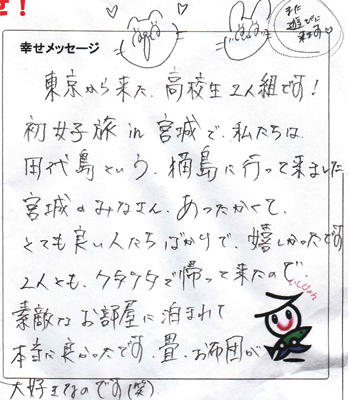 せ!
また
遊びに
来ます
幸せメッセージ
東京から来た、高校生2人組です!
初女子旅 in 宮城で、私たちは、
田代島という、猫島に行って来ました
宮城のみなさん、あったかくて、
とても良い人たちばかりで、嬉しかったです
2人とも、クタクタで帰って来たので、
素敵なお部屋に泊まれて
本当に良かったです。畳・お布団が
大好きなのです(笑)